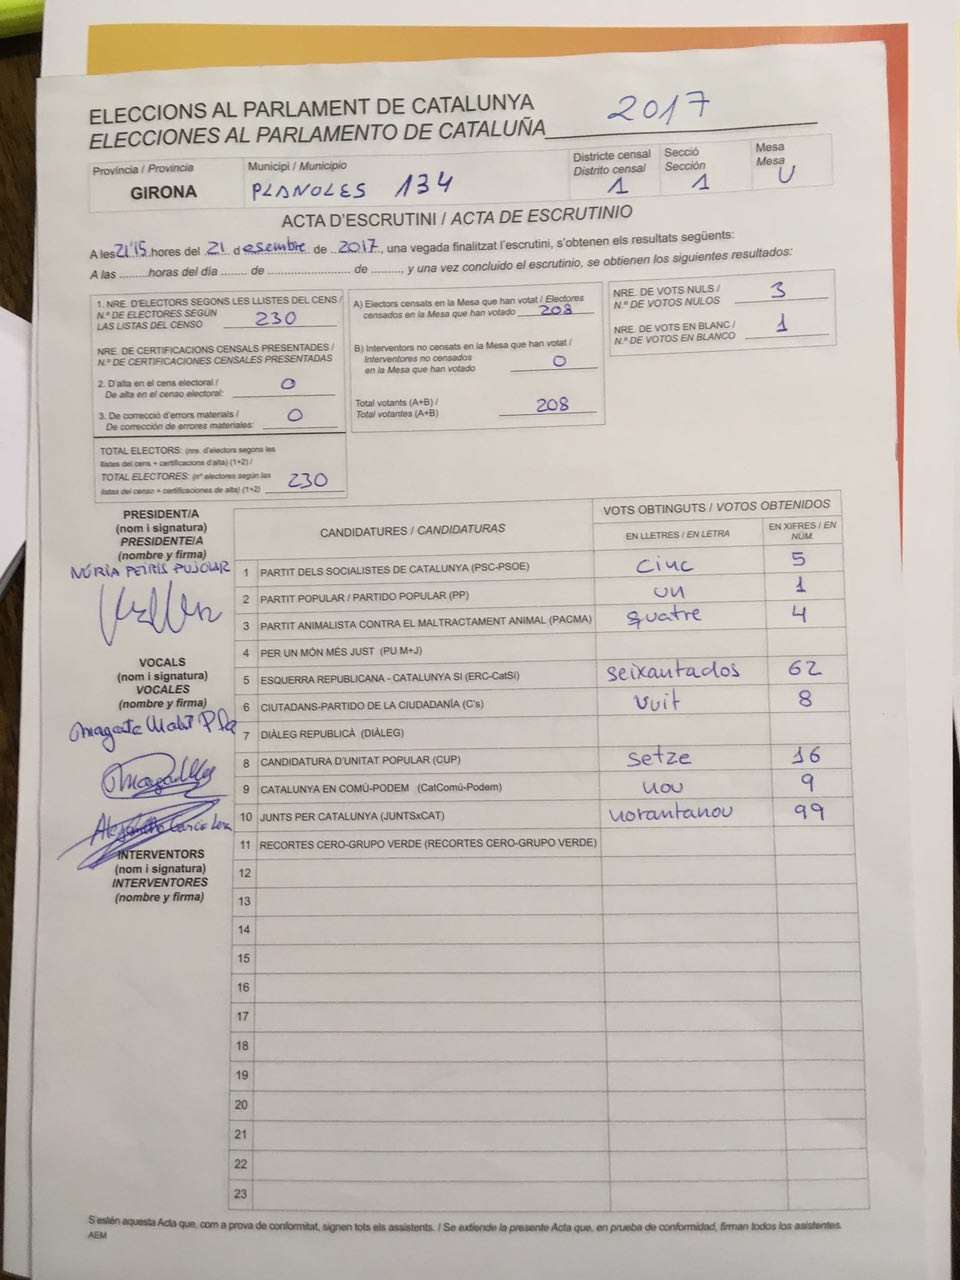 ELECCIONS AL PARLAMENT DE CATALUNYA
ELECCIONES AL PARLAMENTO DE CATALUÑA 2017
Província / Provincia
GIRONA
Municipi / Municipio
PLANOLES 134
Districte censal
Distrito censal
1
Secció
Sección
1
Mesa
Mesa
U
ACTA D'ESCRUTINI / ACTA DE ESCRUTINIO
A les 21'15 hores del 21 d esembre de 2017, una vegada finalitzat l'escrutini, s'obtenen els resultats següents:
A las .........horas del día ........ de .............................. de ........., y una vez concluido el escrutinio, se obtienen los siguientes resultados:
1. NRE. D'ELECTORS SEGONS LES LLISTES DEL CENS /
N.º DE ELECTORES SEGÚN
LAS LISTAS DEL CENSO 230
NRE. DE CERTIFICACIONS CENSALS PRESENTADES /
N.º DE CERTIFICACIONES CENSALES PRESENTADAS
2. D'alta en el cens electoral /
De alta en el censo electoral: 0
3. De correcció d'errors materials /
De corrección de errores materiales: 0
TOTAL ELECTORS: (nre. d'electors segons les
llistes del cens + certificacions d'alta) (1+2) /
TOTAL ELECTORES: (nº electores según las
listas del censo + certificaciones de alta) (1+2) 230
A) Electors censats en la Mesa que han votat / Electores
censados en la Mesa que han votado 208
B) Interventors no censats en la Mesa que han votat /
Interventores no censados
en la Mesa que han votado 0
Total votants (A+B) /
Total votantes (A+B) 208
NRE. DE VOTS NULS /
N.º DE VOTOS NULOS 3
NRE. DE VOTS EN BLANC /
N.º DE VOTOS EN BLANCO 1
PRESIDENT/A
(nom i signatura)
PRESIDENTE/A
(nombre y firma)
NÚRIA PUJOLAR
VOCALS
(nom i signatura)
VOCALES
(nombre y firma)
INTERVENTORS
(nom i signatura)
INTERVENTORES
(nombre y firma)
CANDIDATURES / CANDIDATURAS
VOTS OBTINGUTS / VOTOS OBTENIDOS
EN LLETRES / EN LETRA
EN XIFRES / EN
NÚM.
1 PARTIT DELS SOCIALISTES DE CATALUNYA (PSC-PSOE) cinc 5
2 PARTIT POPULAR / PARTIDO POPULAR (PP) un 1
3 PARTIT ANIMALISTA CONTRA EL MALTRACTAMENT ANIMAL (PACMA) quatre 4
4 PER UN MÓN MÉS JUST (PU M+J)
5 ESQUERRA REPUBLICANA - CATALUNYA SI (ERC-CatSí) seixantados 62
6 CIUTADANS-PARTIDO DE LA CIUDADANÍA (C's) vuit 8
7 DIÀLEG REPUBLICÀ (DIÀLEG)
8 CANDIDATURA D'UNITAT POPULAR (CUP) setze 16
9 CATALUNYA EN COMÚ-PODEM (CatComú-Podem) nou 9
10 JUNTS PER CATALUNYA (JUNTSxCAT) norantanou 99
11 RECORTES CERO-GRUPO VERDE (RECORTES CERO-GRUPO VERDE)
12
13
14
15
16
17
18
19
20
21
22
23
S'estén aquesta Acta que, com a prova de conformitat, signen tots els assistents. / Se extiende la presente Acta que, en prueba de conformidad, firman todos los asistentes.
AEM